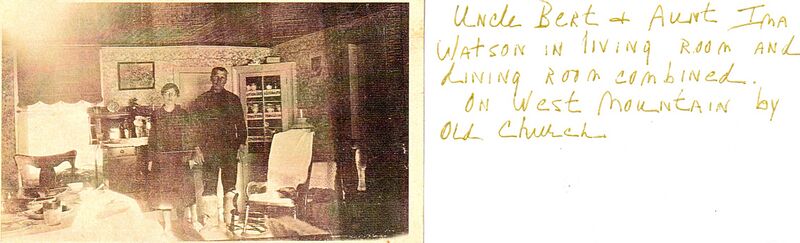 Uncle Bert & Aunt Ima
Watson in living room and
dining room combined.
On West Mountain by
Old Church